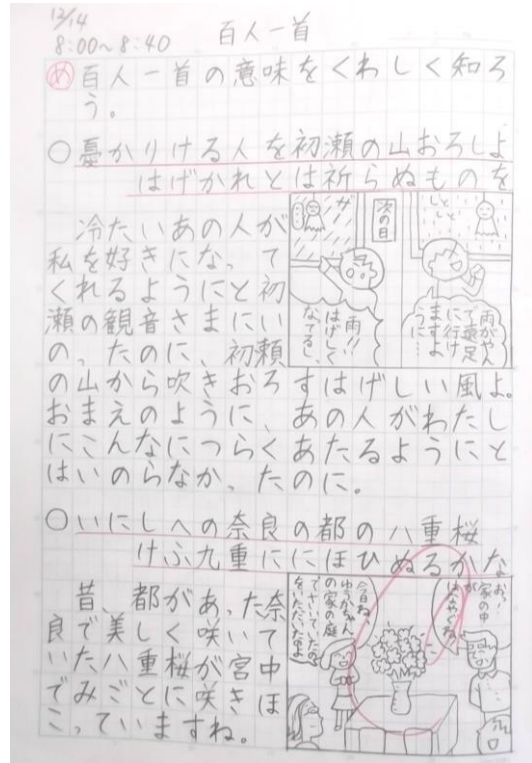 12/14
8:00～8:40 百人一首
め 百人一首の意味をくわしく知ろ
う。
○憂かりける人を初瀬の山おろしよ
はげかれとは祈らぬものを
冷たいあの人が
私を好きになって
くれるようにと初
瀬の観音さまにい
のったのに、初瀬
の山から吹きおろすはげしい風よ。
おまえのように、あの人がわたし
にこんなにつらくあたるようにと
はいのらなかったのに。
雨がやん
で遠足
に行け
ますよ
うに…
次の日
ガ
雨!!
はげしく
なってるし、
○いにしへの奈良の都の八重桜
けふ九重ににほひぬるかな
昔、都があった奈
良で美しく咲いて
いた八重桜が宮中
でみごとに咲きほ
こっていますね。
お!
家の中
が
はなやかだね
今日ね、
ゆうかちゃん
の家の庭
でさいていたの
をいただいたのよ